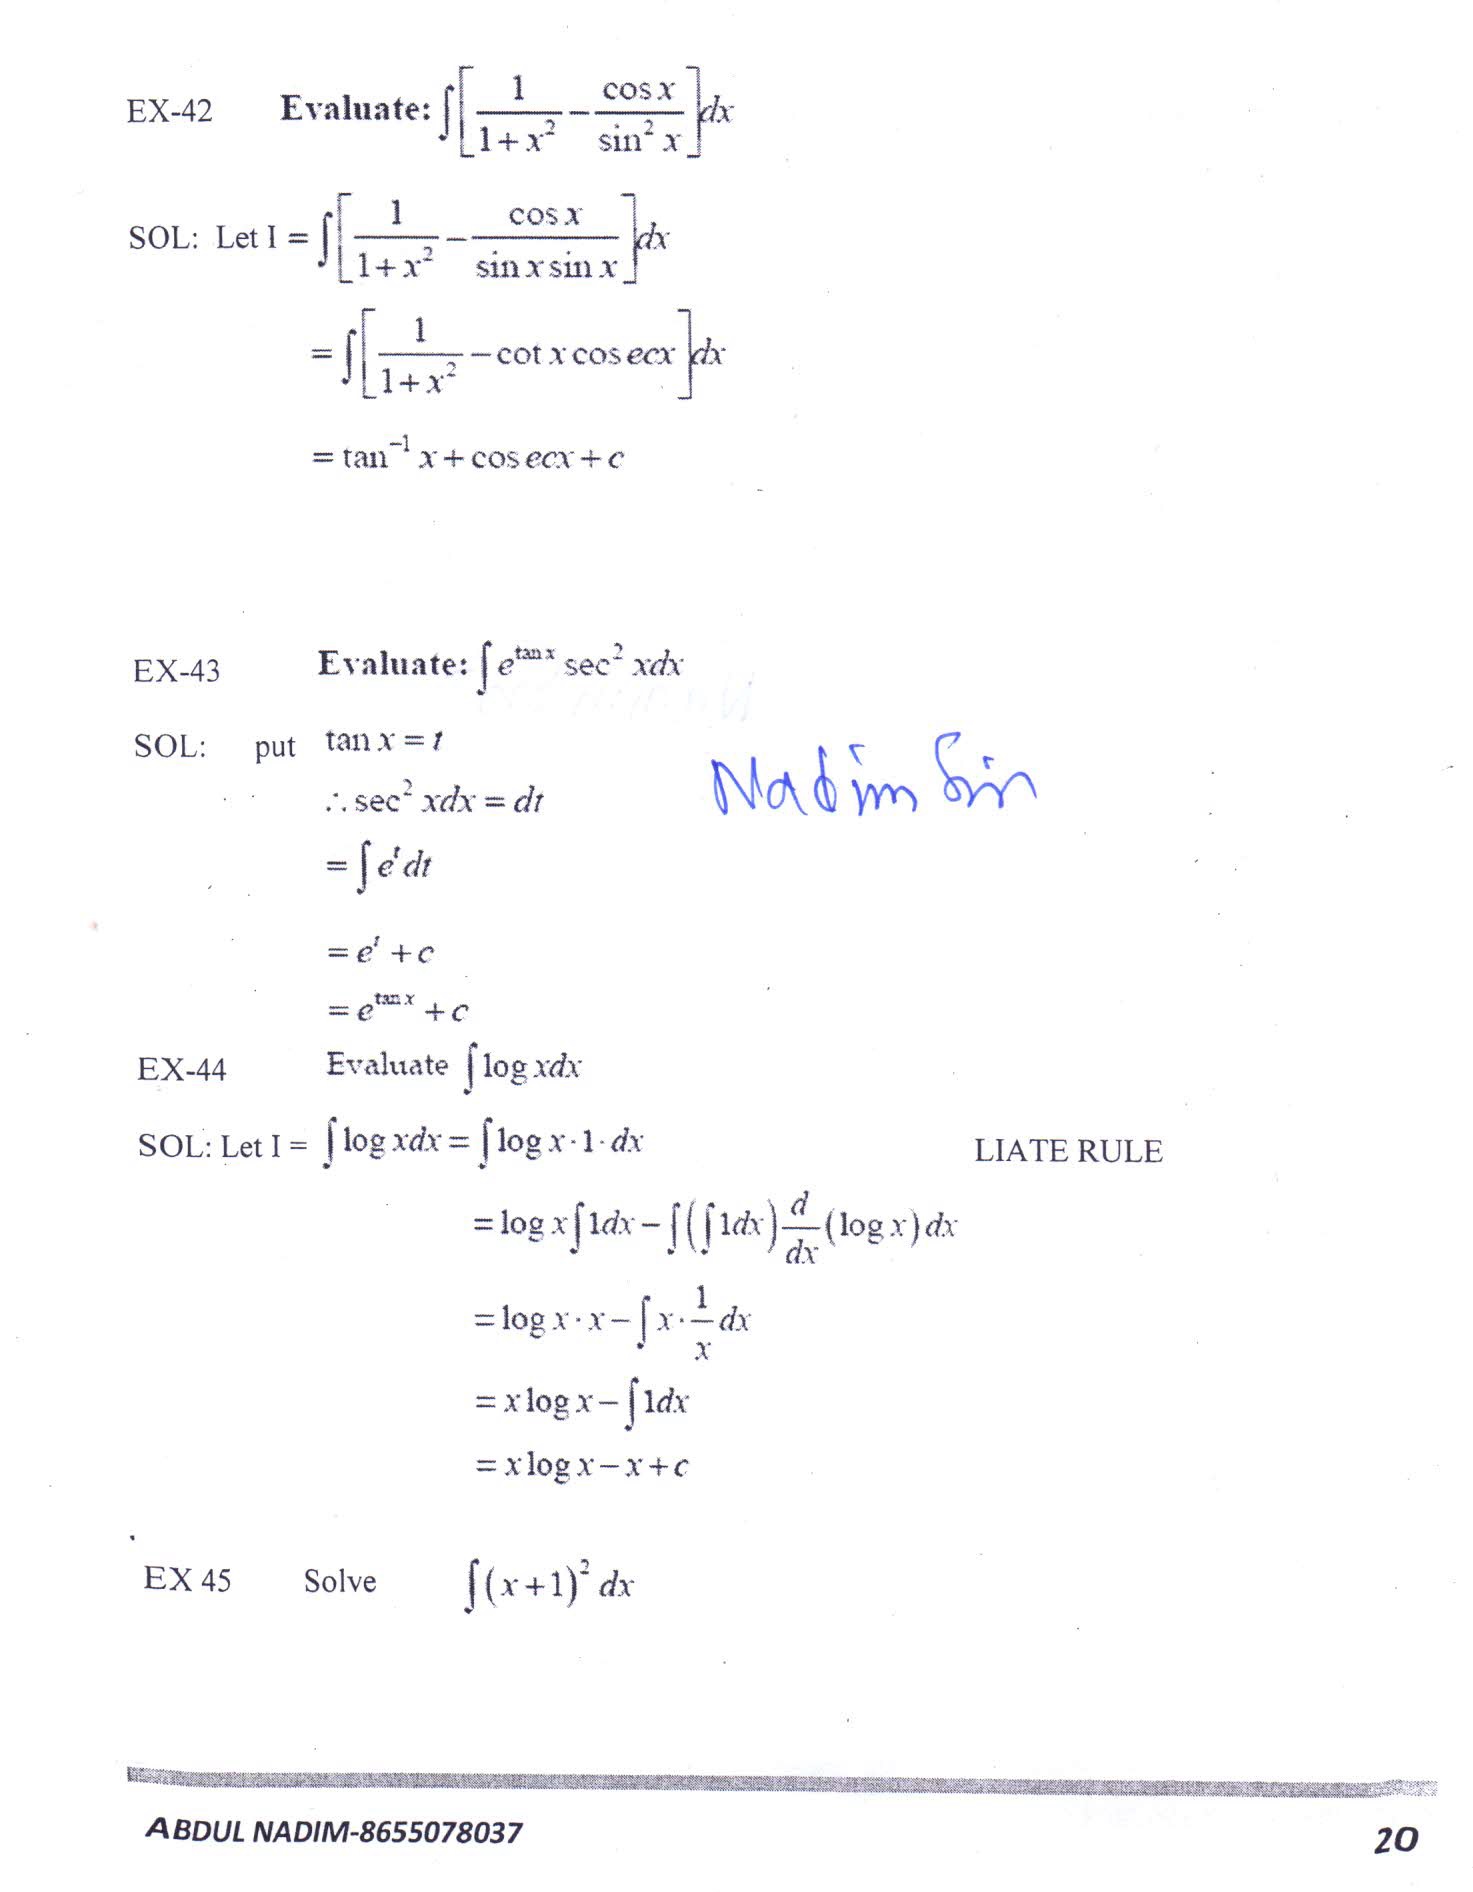 EX-42 Evaluate: ∫[1/(1+x²) − cos x/sin² x]dx
SOL: Let I = ∫[1/(1+x²) − cos x/(sin x sin x)]dx
= ∫[1/(1+x²) − cot x cos ecx]dx
= tan⁻¹ x + cos ecx + c
EX-43 Evaluate: ∫ e^(tan x) sec² xdx
SOL: put tan x = t
∴ sec² xdx = dt
Nadim Sir
= ∫ e^t dt
= e^t + c
= e^(tan x) + c
EX-44 Evaluate ∫ log xdx
SOL: Let I = ∫ log xdx = ∫ log x · 1 · dx LIATE RULE
= log x ∫ 1dx − ∫(∫ 1dx) d/dx (log x) dx
= log x · x − ∫ x · 1/x dx
= x log x − ∫ 1dx
= x log x − x + c
EX 45 Solve ∫(x+1)² dx
ABDUL NADIM-8655078037 20